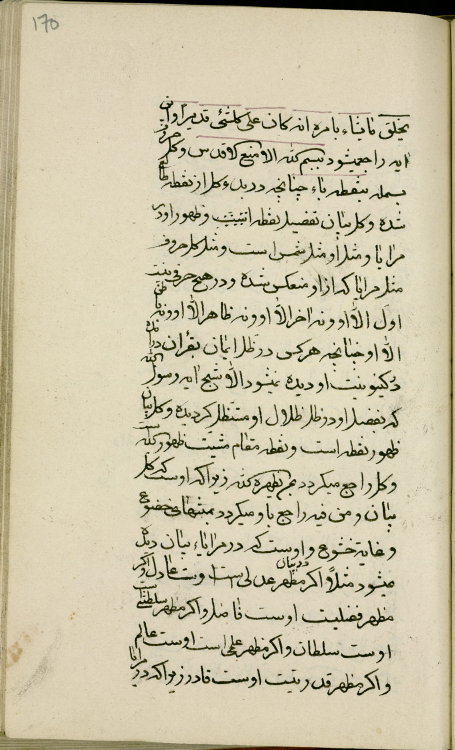 170
یخلق ما یشاء بامره انه کان علی کلشئ قدیرا و این
ایه راجع میشود ببسم الله الامنع الاقدس و کل حروف
بسمله بنقطه باء چنانچه در بدء کل از نقطه ظاهر
شده و کل بیان تفصیل نقطه است و ظهور او در
مرایا و مثل او مثل شمس است و مثل کل حروف
مثل مرایا که از او منعکس شده و در هیچ حرفی نیست
اول الا او و نه اخر الا او و نه ظاهر الا او و نه باطن
الا او چنانچه هر کس در ظل ایمان بقران در آمده
دکینونیت او دیده نمیشود الا شبح ایه رسول الله
که بفضل او در ظل ظلال او مستظل کردیده و کل بیان
ظهور نقطه است و نقطه مقام مشیت ظهور الله است
و کل راجع میکردد بمن یظهره الله زیرا که اوست که کل
بیان و من فیه راجع باو میکردد بمنتهای خضوع
و غایة خشوع و اوست که در مرایای بیان دیده
میشود مثلا اگر مظهر عدلی است در بیان اوست عادل و اگر
مظهر فضلیست اوست فاضل و اگر مظهر سلطنتی است
اوست سلطان و اگر مظهر علمی است اوست عالم
و اگر مظهر قدرتیست اوست قادر زیرا که در مرایا